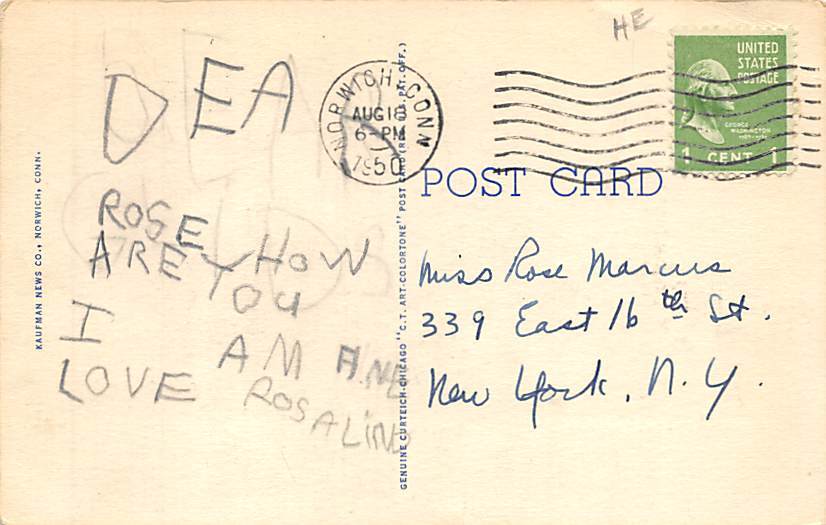 HE
UNITED
STATES
POSTAGE
GEORGE
WASHINGTON
1 CENT 1
NORWICH, CONN
AUG 18
6-PM
1950
POST CARD
DEA
ROSE HOW
ARE YOU
I
AM FINE
LOVE
ROSALIND
Miss Rose Marcus
339 East 16th St.
New York, N.Y.
KAUFMAN NEWS CO., NORWICH, CONN.
GENUINE CURTEICH-CHICAGO "C.T. ART-COLORTONE" POST CARD (REG. U.S. PAT. OFF.)